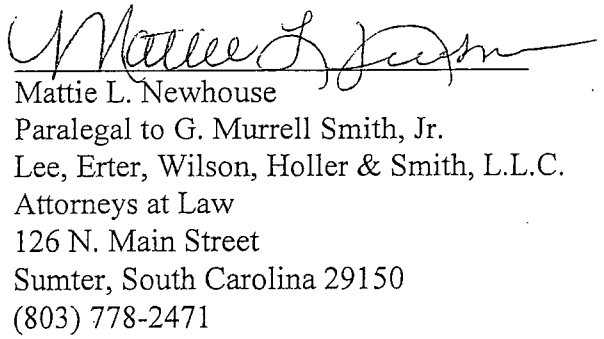 Mattie L. Newhouse
Mattie L. Newhouse
Paralegal to G. Murrell Smith, Jr.
Lee, Erter, Wilson, Holler & Smith, L.L.C.
Attorneys at Law
126 N. Main Street
Sumter, South Carolina 29150
(803) 778-2471